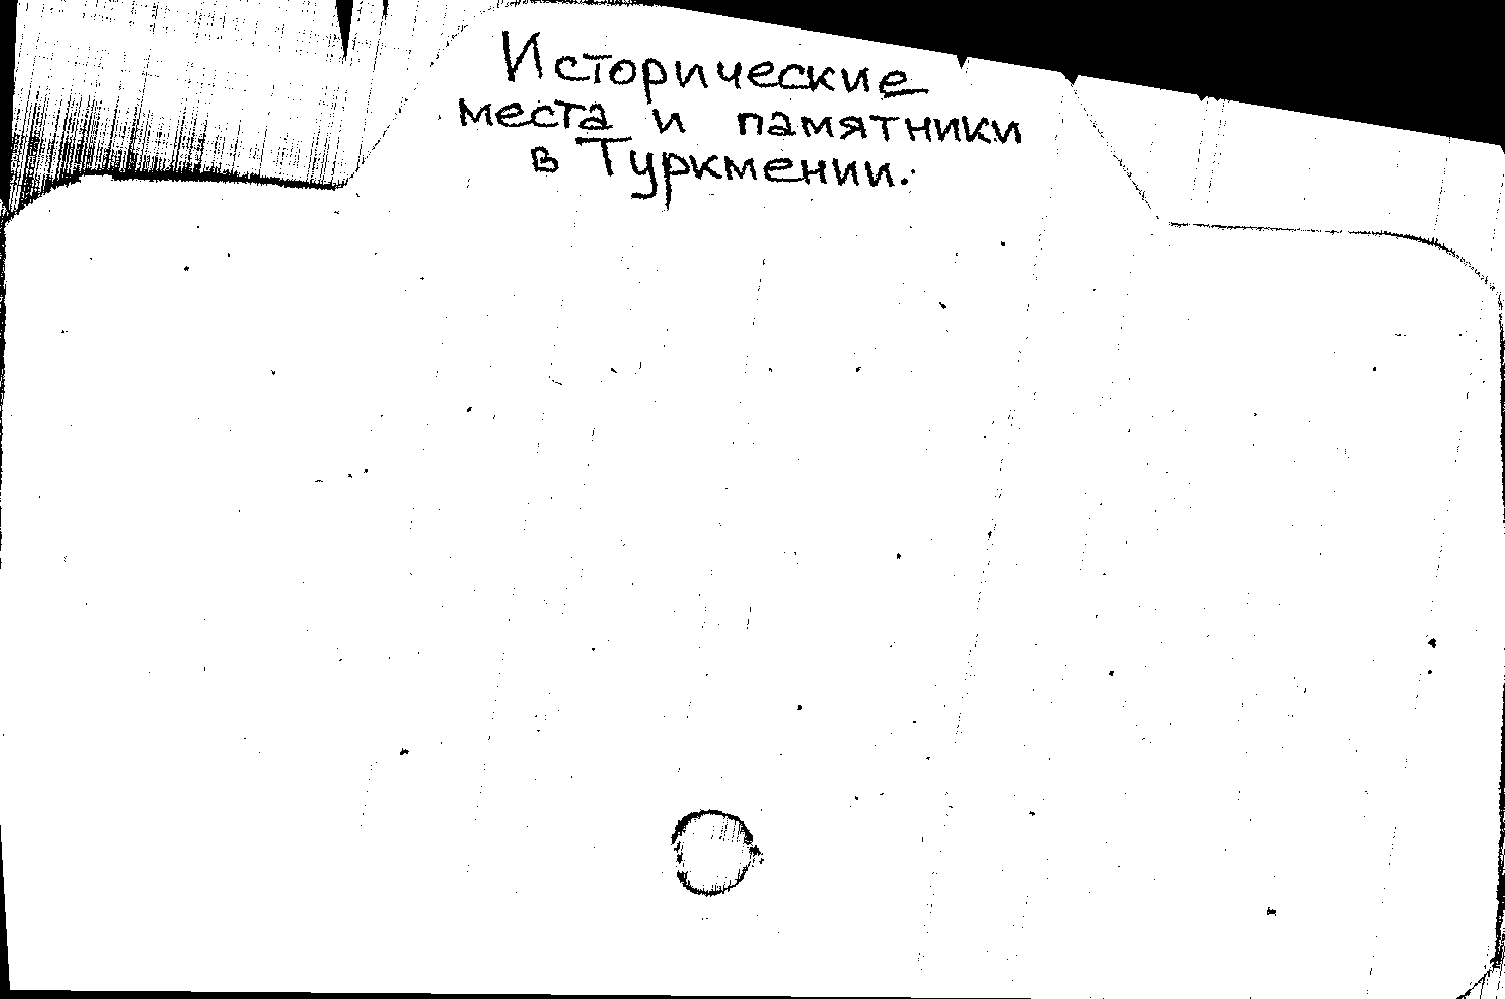 Исторические
места и памятники
в Туркмении.